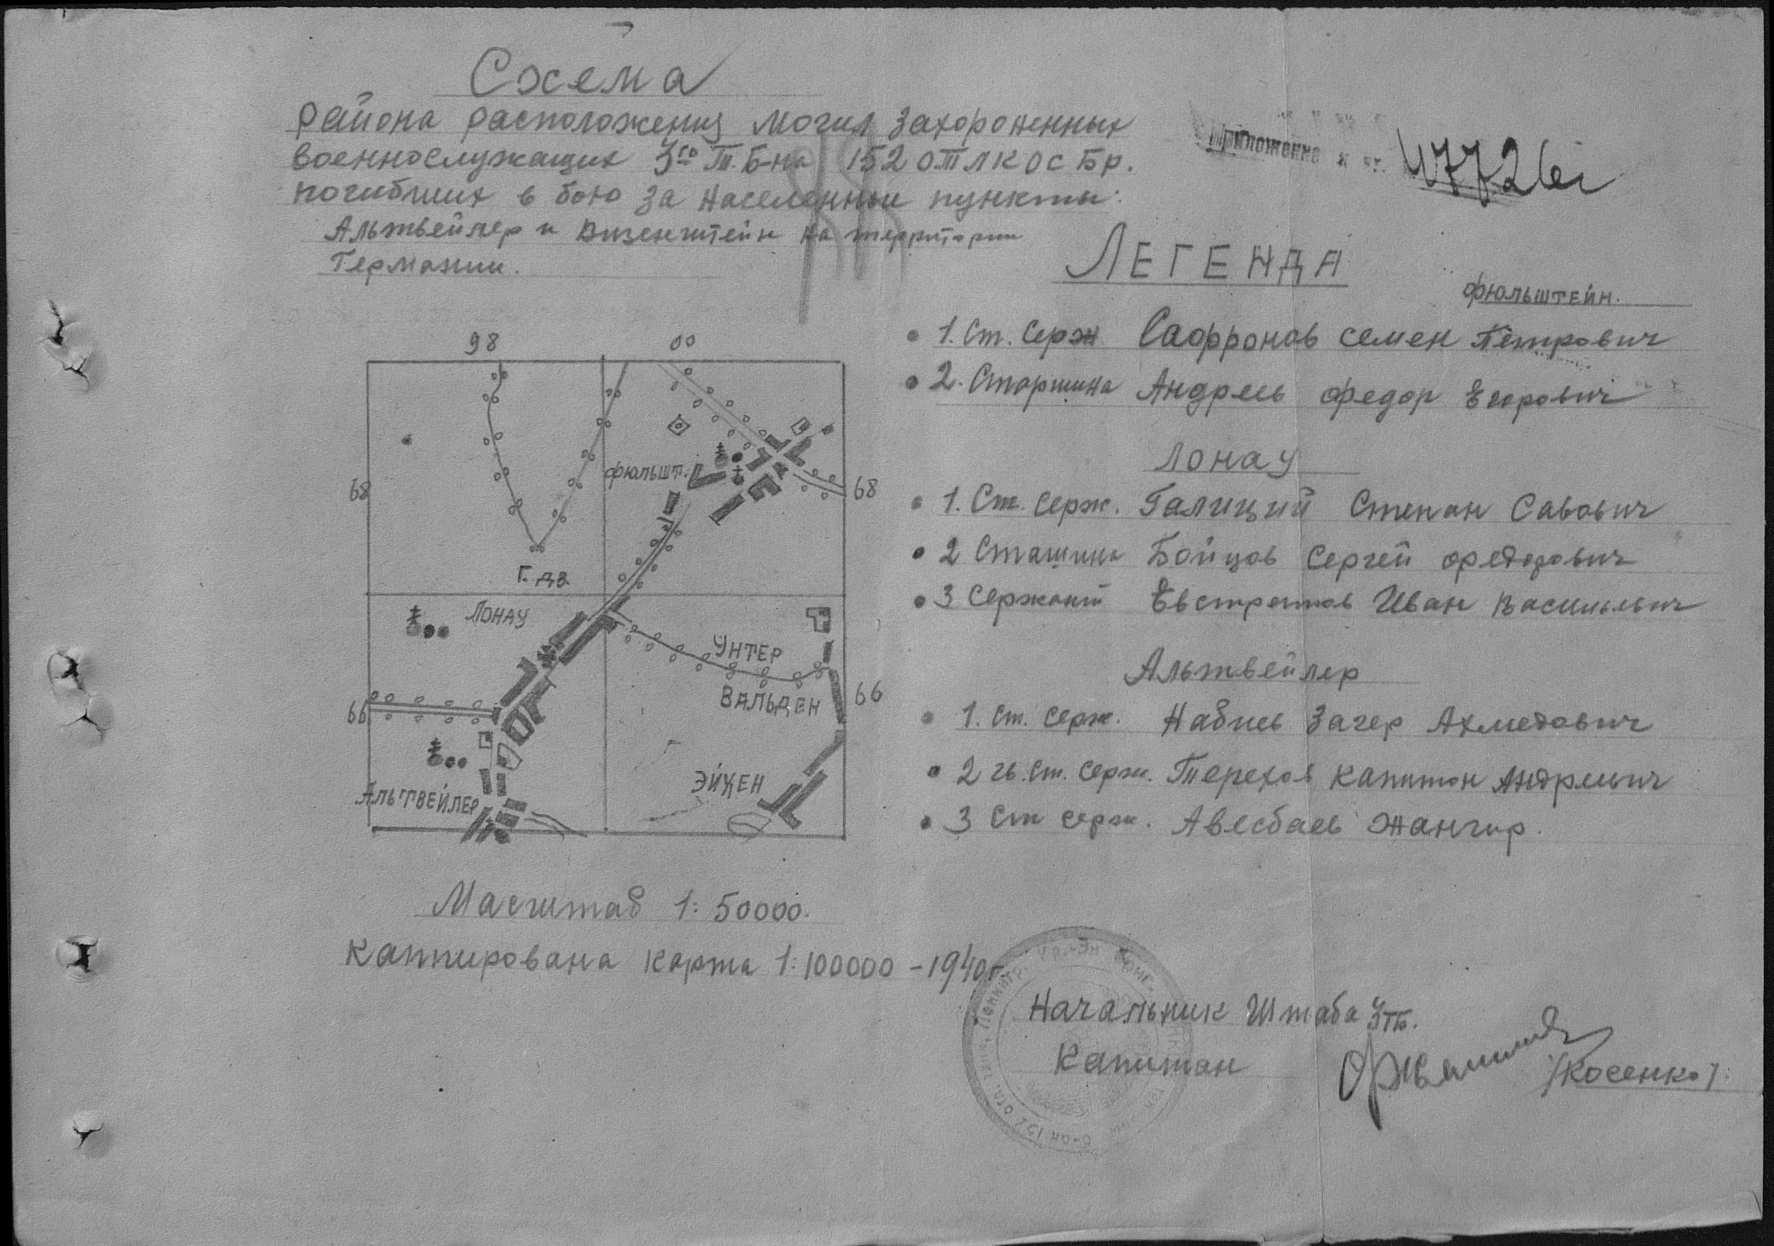 Схема
района расположения могил захороненных
военнослужащих 3го Т.Б-на 152 ОТЛКОСБр.
погибших в бою за населенные пункты:
Альтвейлер и Визенштейн на территории
Германии.
Приложение к вх. 47726с
ЛЕГЕНДА
ФЮЛЬШТЕЙН.
1. Ст. Серж Сафронов Семен Петрович
2. Старшина Андреев Федор Егорович
Лонау
1. Ст. Серж. Галицкий Степан Савович
2 Сташина Бойцов Сергей Федорович
3 Сержант Евстратов Иван Васильевич
Альтвейлер
1. Ст. Серж. Набиев Загер Ахметович
2 гв. Ст. Серж. Терехов Капитон Андреевич
3 Ст Серж. Авесбаев Жангир.
98 00
68 ФЮЛЬШТ. 68
Г. ДВ.
ЛОНАУ
УНТЕР
ВАЛЬДЕН
66 66
ЭЙХЕН
АЛЬТВЕЙЛЕР
Масштаб 1:50000.
Каппирована карта 1:100000 - 1940г
Начальник Штаба 3ТБ.
Капитан /Косенко/.